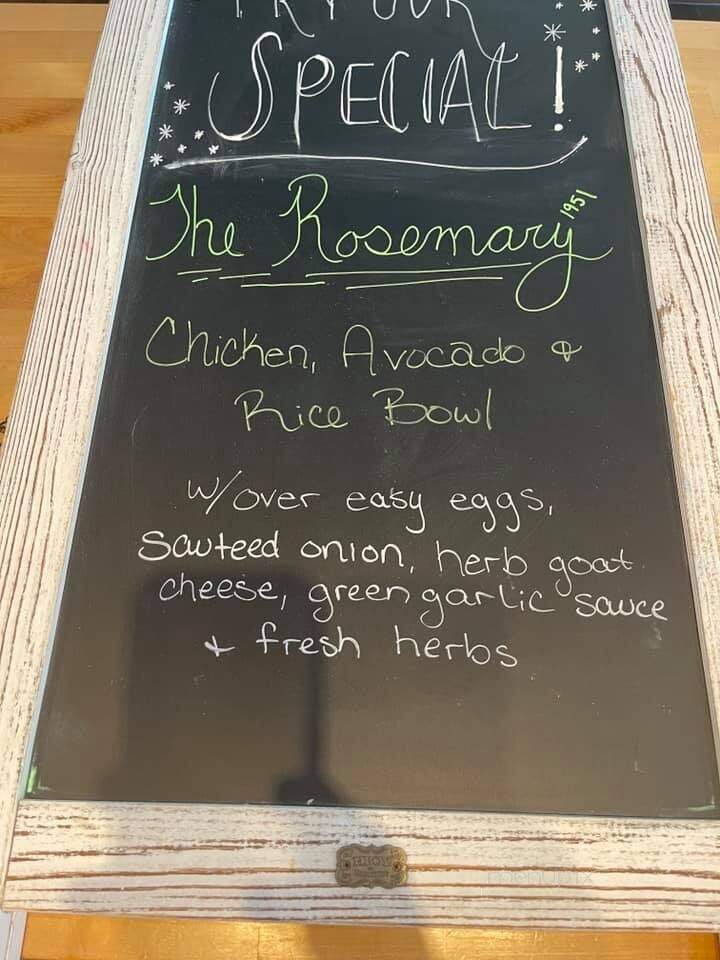 TRY OUR
SPECIAL!
The Rosemary
1951
Chicken, Avocado &
Rice Bowl
w/over easy eggs,
Sauteed onion, herb goat
cheese, green garlic sauce
& fresh herbs